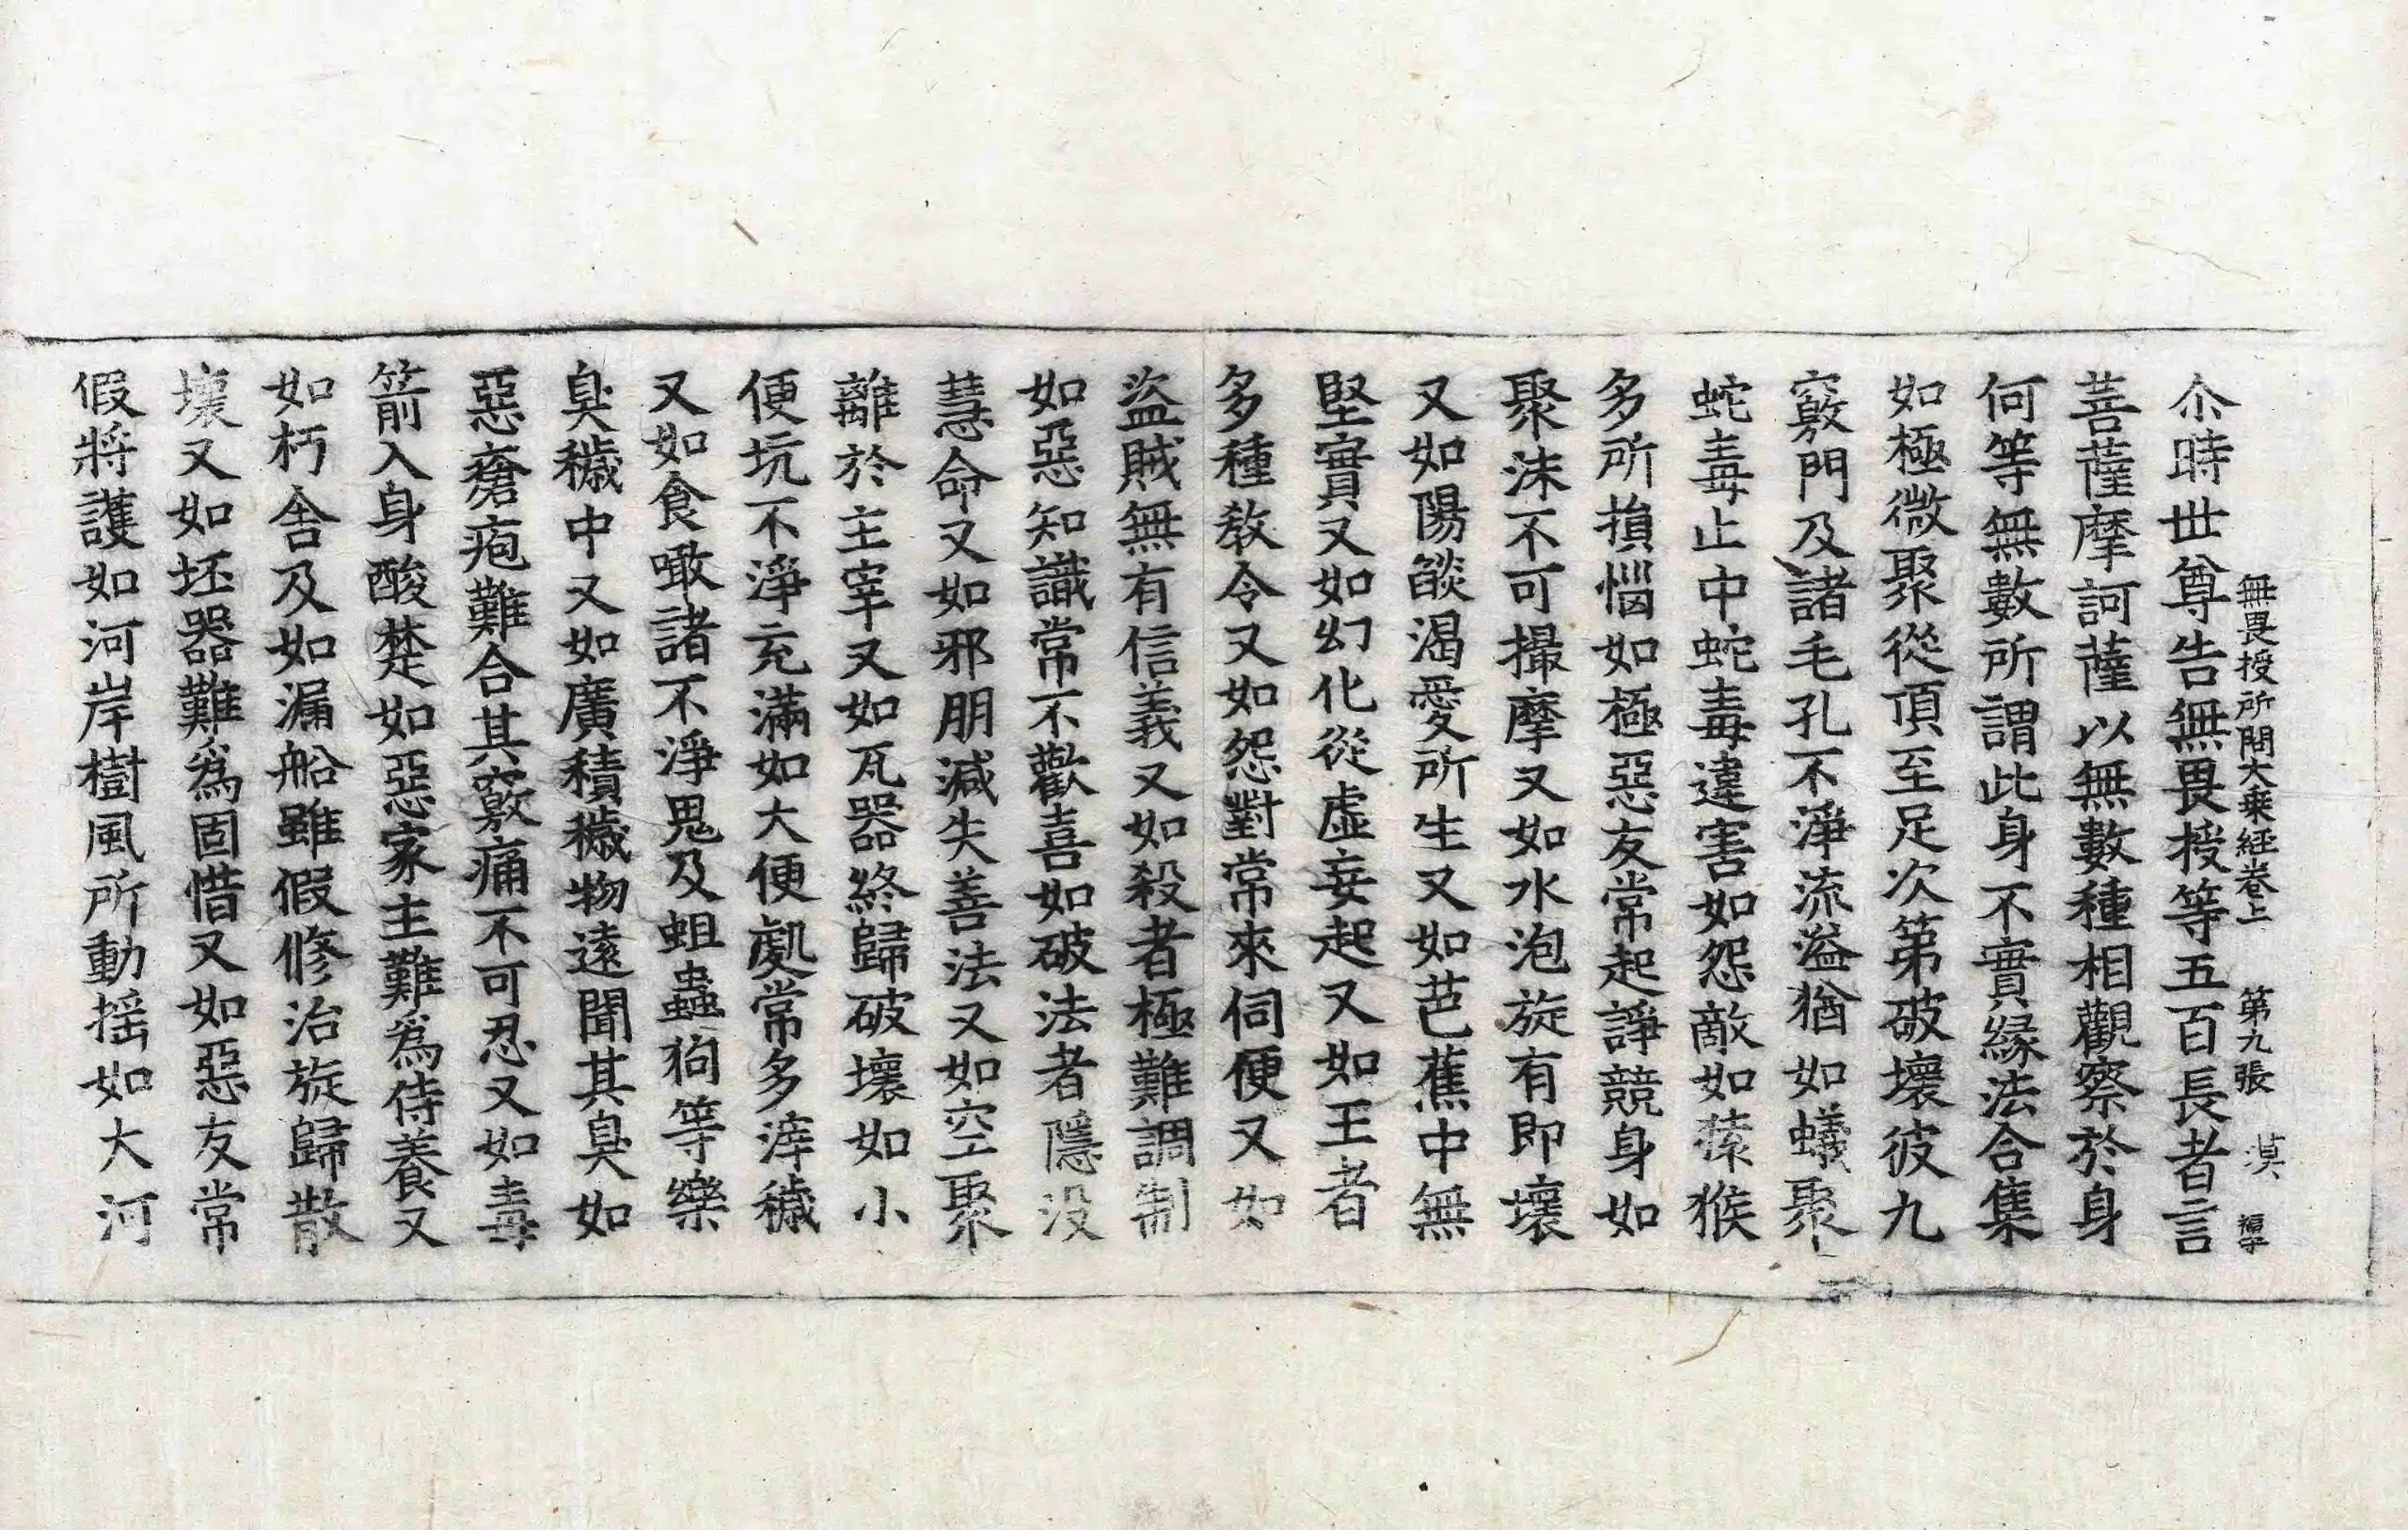 無畏授所問大乘經卷上 第九張 漠
尒時世尊告無畏授等五百長者言
菩薩摩訶薩以無數種相觀察於身
何等無數所謂此身不實緣法合集
如極微聚從頂至足次第破壞彼九
竅門及諸毛孔不淨流溢猶如蟻聚
蛇毒止中蛇毒違害如怨敵如猿猴
多所損惱如極惡友常起諍競身如
聚沫不可撮摩又如水泡旋有即壞
又如陽燄渴愛所生又如芭蕉中無
堅實又如幻化從虛妄起又如王者
多種敎令又如怨對常來伺便又如
盜賊無有信義又如殺者極難調制
如惡知識常不歡喜如破法者隱沒
慧命又如邪朋減失善法又如空聚
離於主宰又如瓦器終歸破壞如小
便坑不淨充滿如大便處常多滓穢
又如食噉諸不淨鬼及蛆蟲狗等樂
臭穢中又如廣積穢物遠聞其臭如
惡瘡疱難合其竅痛不可忍又如毒
箭入身酸楚如惡家主難爲侍養又
如朽舍及如漏船雖假修治旋歸散
壞又如坯器難爲固惜又如惡友常
假將護如河岸樹風所動搖如大河